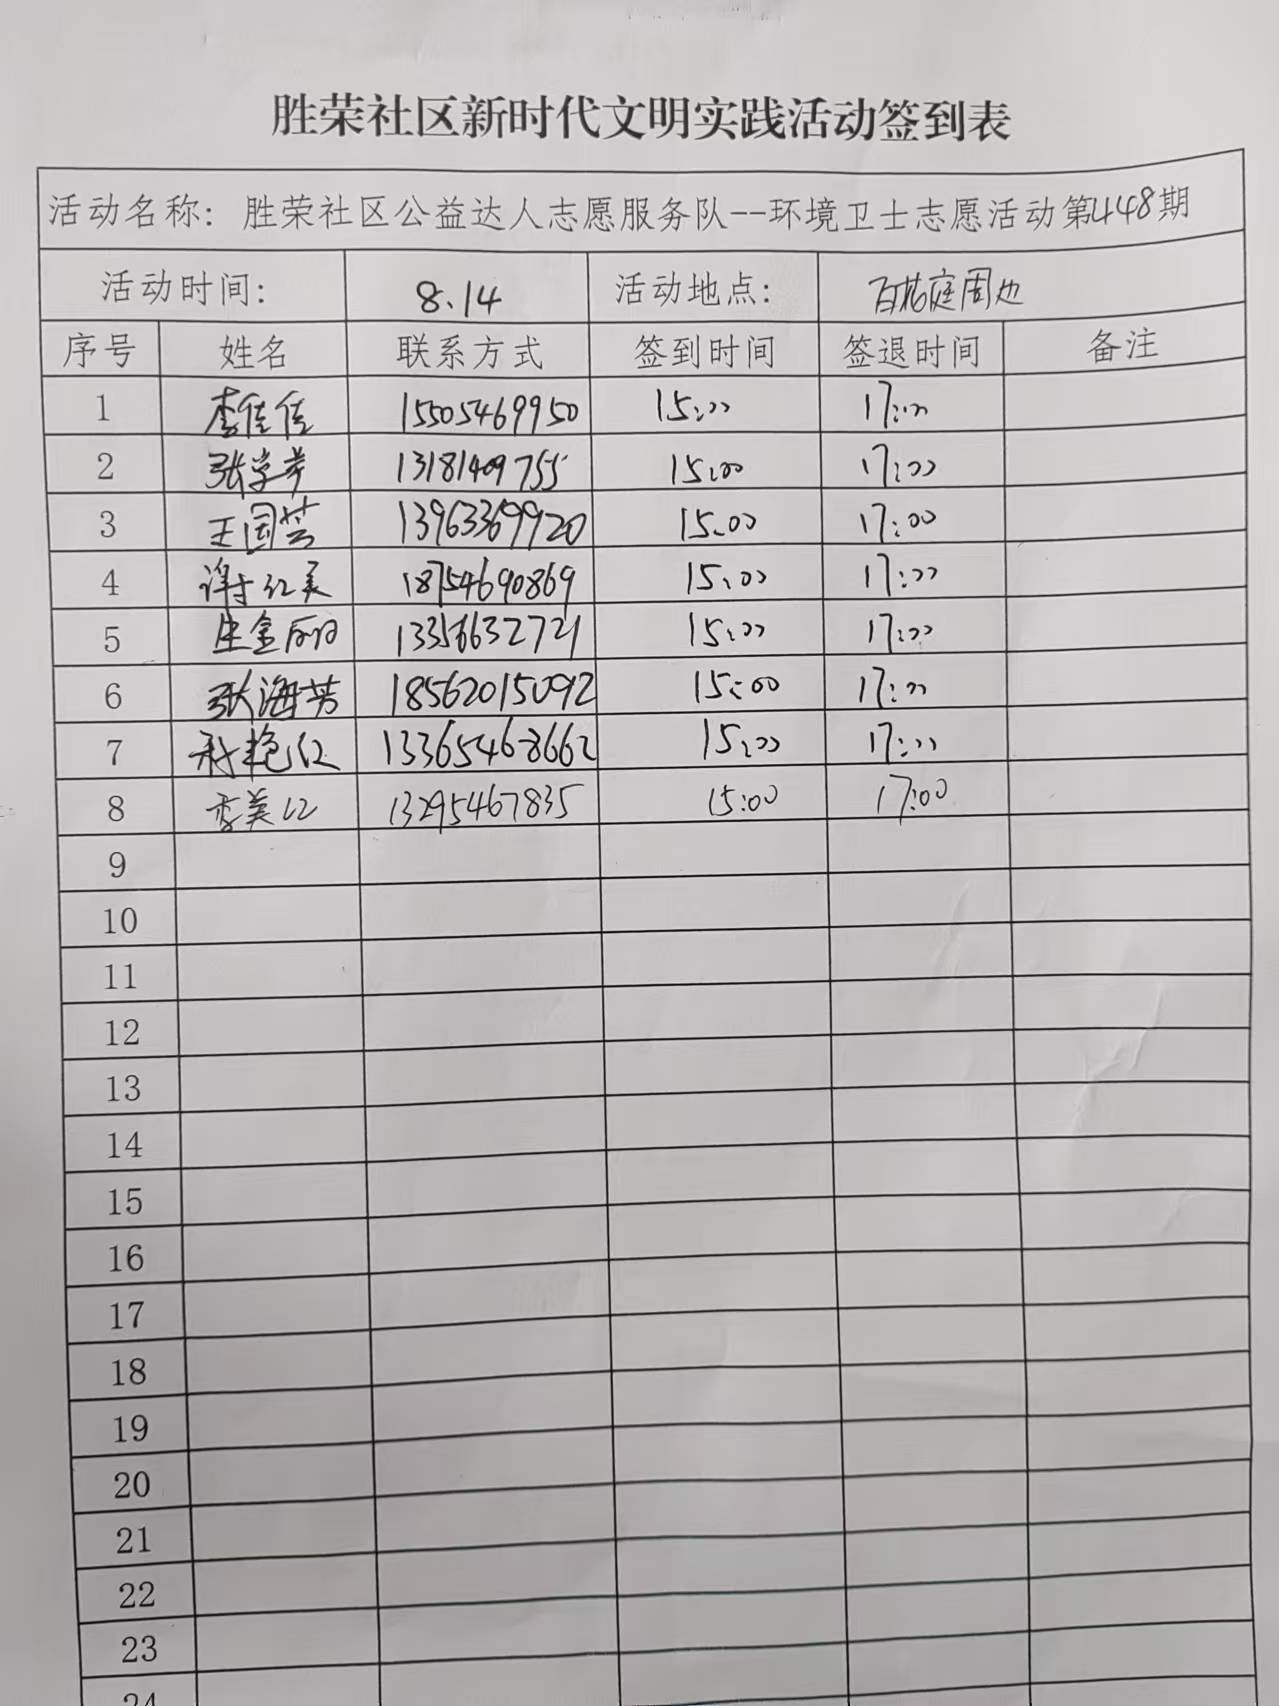 胜荣社区新时代文明实践活动签到表
活动名称：胜荣社区公益达人志愿服务队--环境卫士志愿活动第448期
活动时间： 8.14 活动地点： 百花庭周边
序号 姓名 联系方式 签到时间 签退时间 备注
1 李佳佳 15505469950 15:00 17:00
2 张学芳 13181409755 15:00 17:00
3 王国芸 13963369920 15:00 17:00
4 谢红美 18754690869 15:00 17:00
5 生金丽 13356632721 15:00 17:00
6 张海芳 18562015092 15:00 17:00
7 艳红 13365468662 15:00 17:00
8 李美红 13295467835 15:00 17:00
9
10
11
12
13
14
15
16
17
18
19
20
21
22
23
24